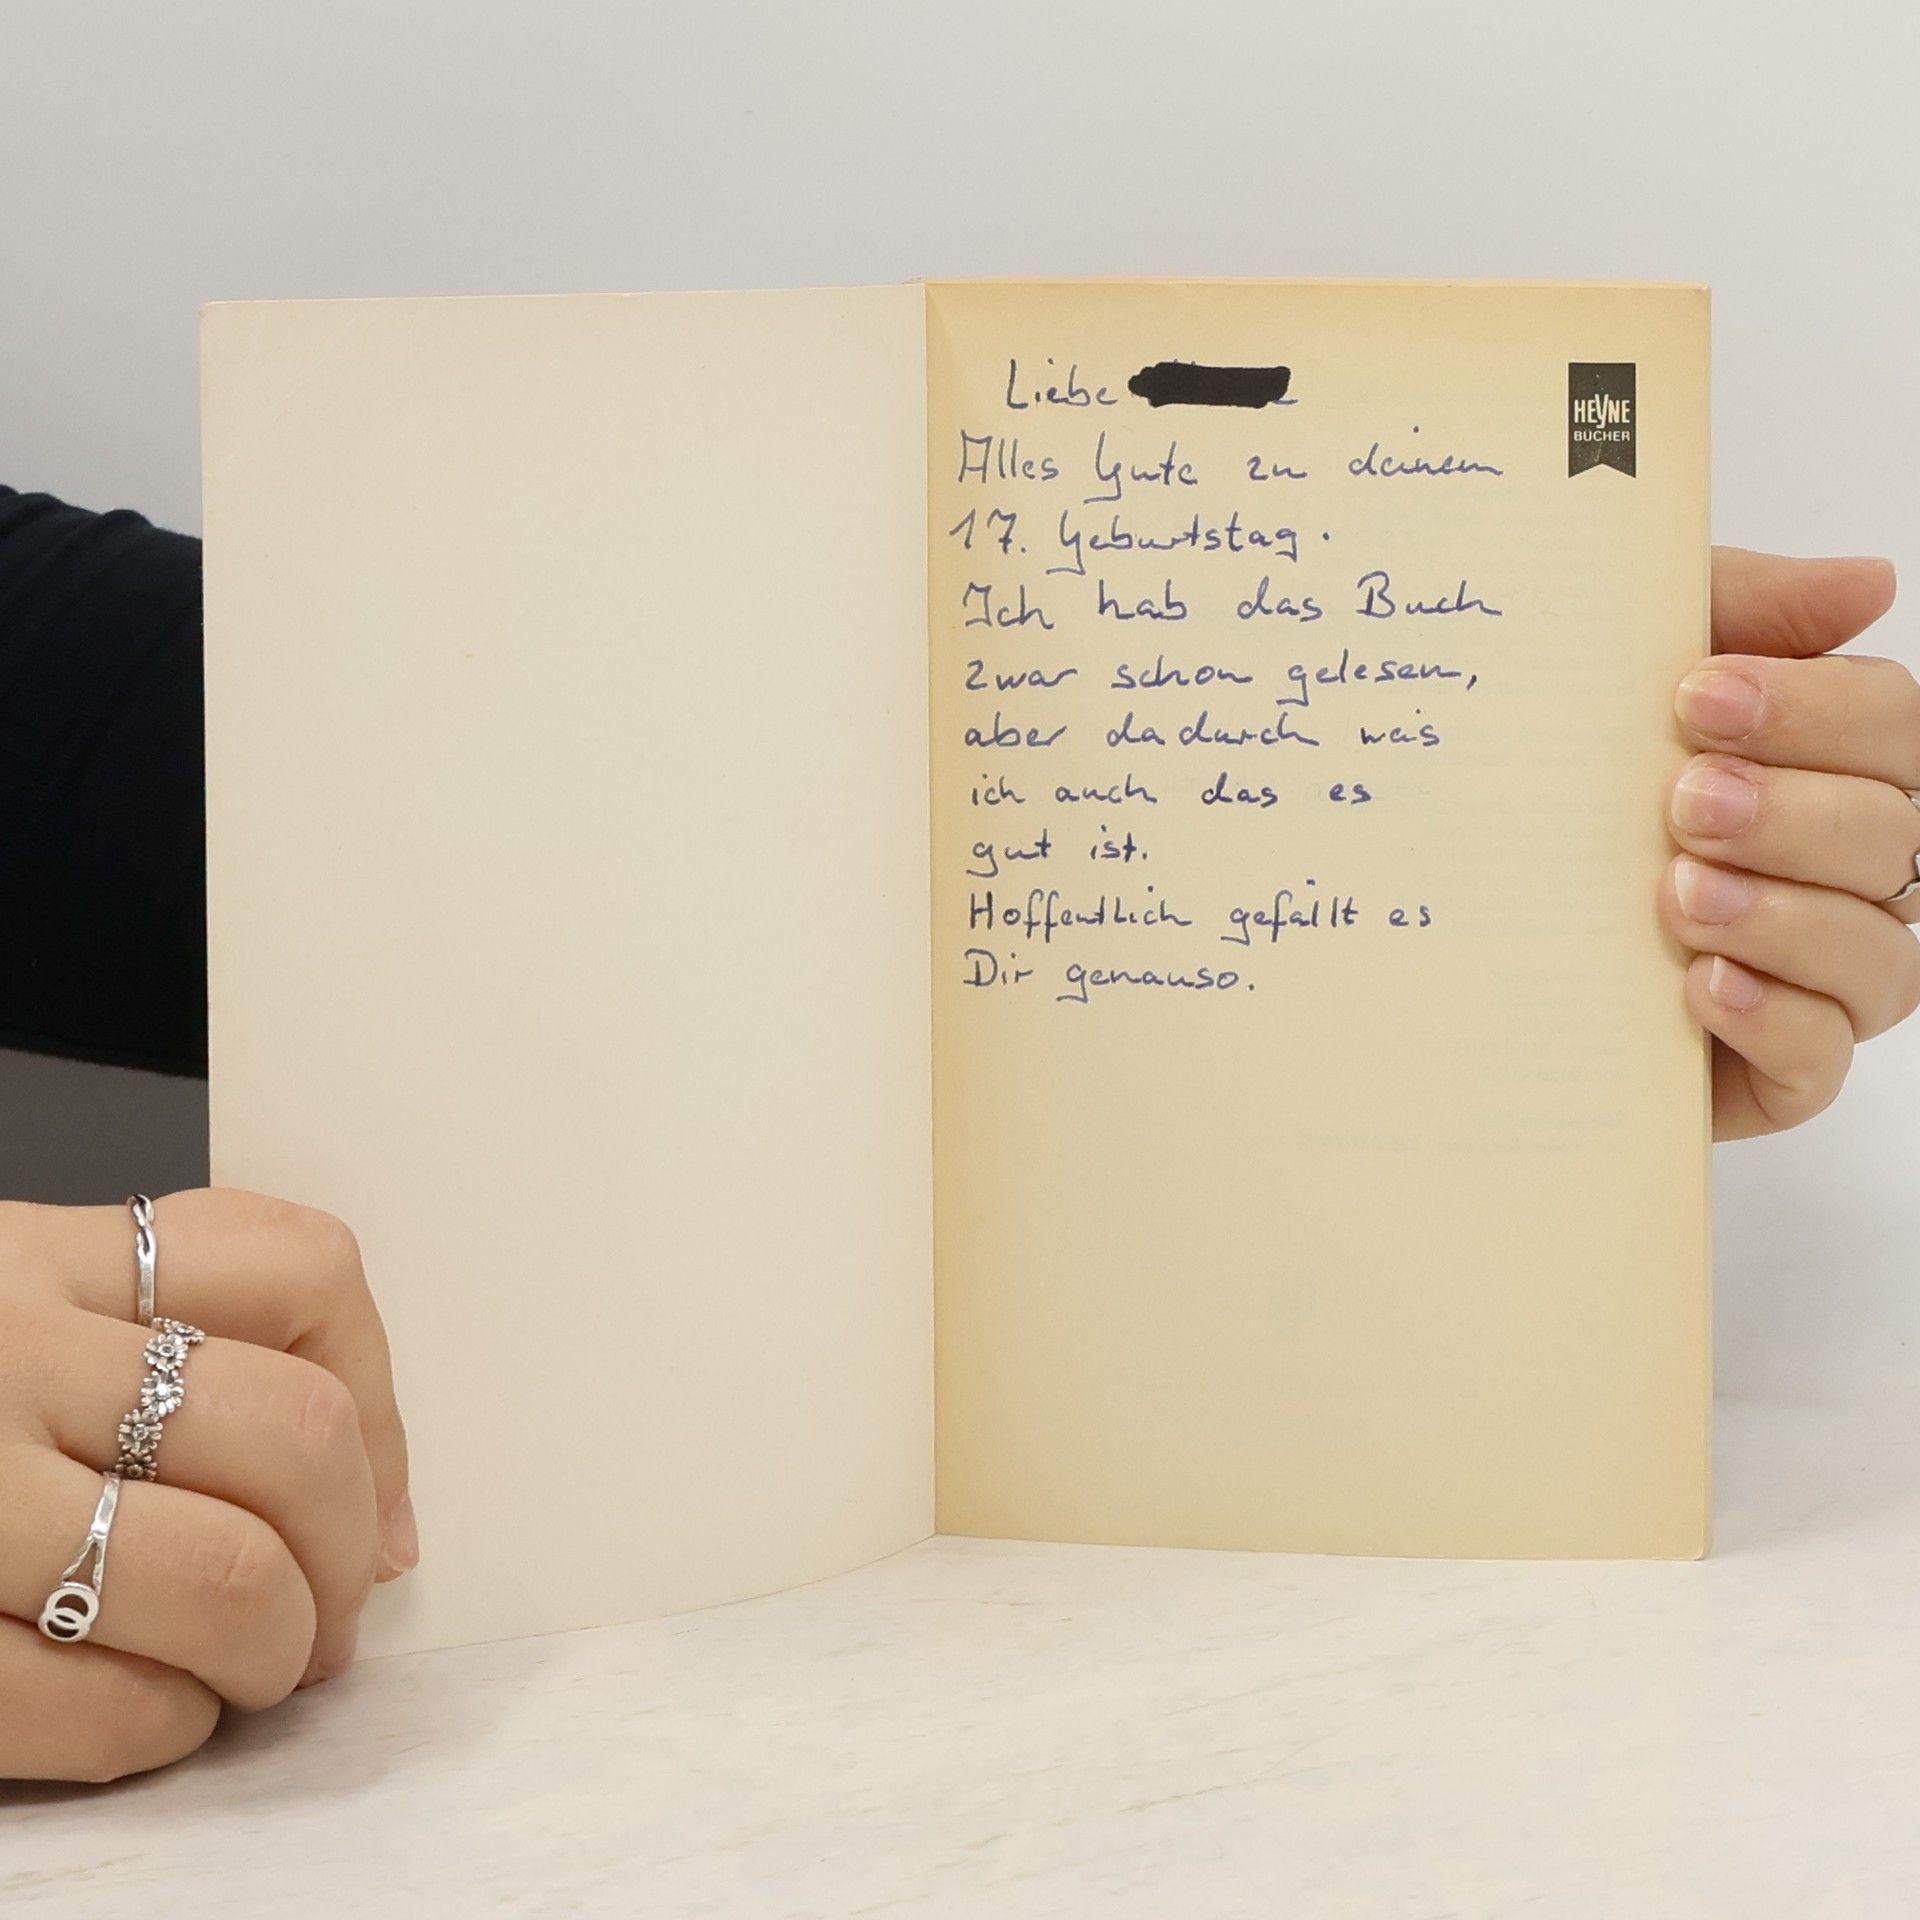 Liebe
Alles Gute zu deinem
17. Geburtstag.
Ich hab das Buch
zwar schon gelesen,
aber dadurch weis
ich auch das es
gut ist.
Hoffentlich gefällt es
Dir genauso.
HEYNE
BÜCHER